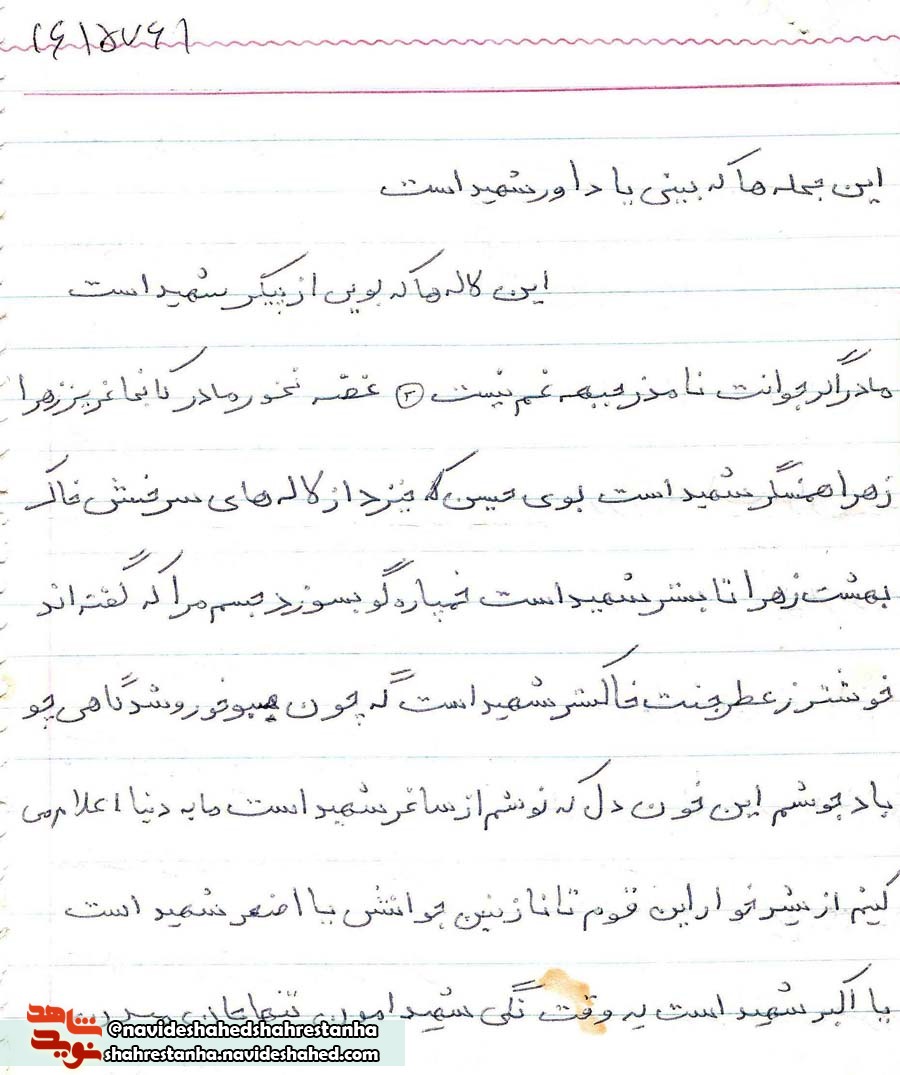 این جمله ها که بینی یا داور شهید است
این لاله ها که بویی از پیکر شهید است
مادر اگر جوانت نامد ز جبهه غم نیست ② غصه نخور مادر کانجا عزیز زهرا
زهرا همسنگر شهید است بوی حسین که خیزد از لاله های سرخش خاک
بهشت زهرا تا بستر شهید است خمپاره گو بسوزد جسم مرا که گفته اند
خوشتر ز عطر جنت خاکستر شهید است گه چون سبو خورو شد گاهی چو
باد جوشم این خون دل که نوشم از ساغر شهید است ما به دنیا اعلام می
کنیم از شیر خوار این قوم تا نازنین جوانش یا اصغر شهید است
یا اکبر شهید است یه وقت نگی شهید امون تنها
شاهد
نوید
@navideshahedshahrestanha
shahrestanha.navideshahed.com